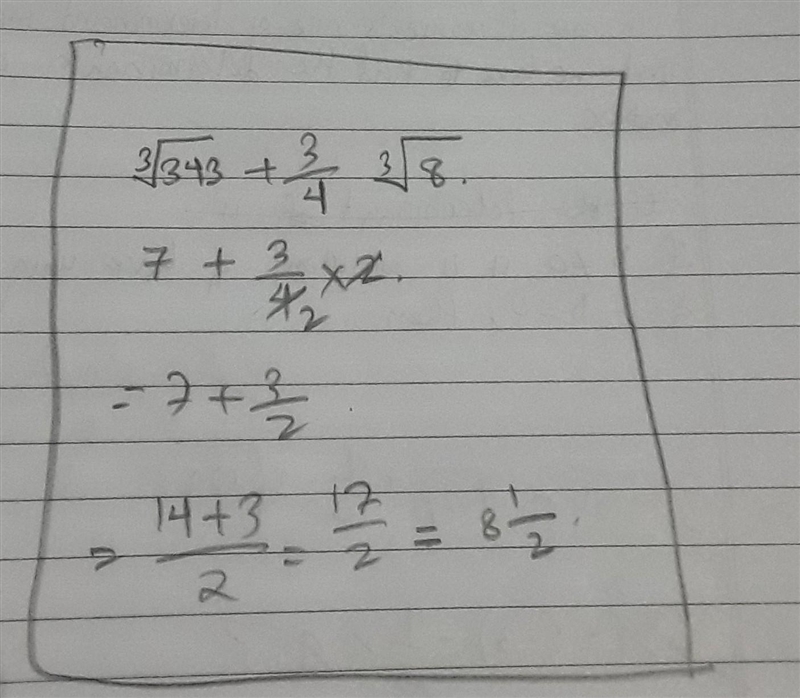 ∛343 + 3/4 ∛8.
7 + 3/4̸2 × 2̸.
= 7 + 3/2
= (14+3)/2 = 17/2 = 8 1/2.